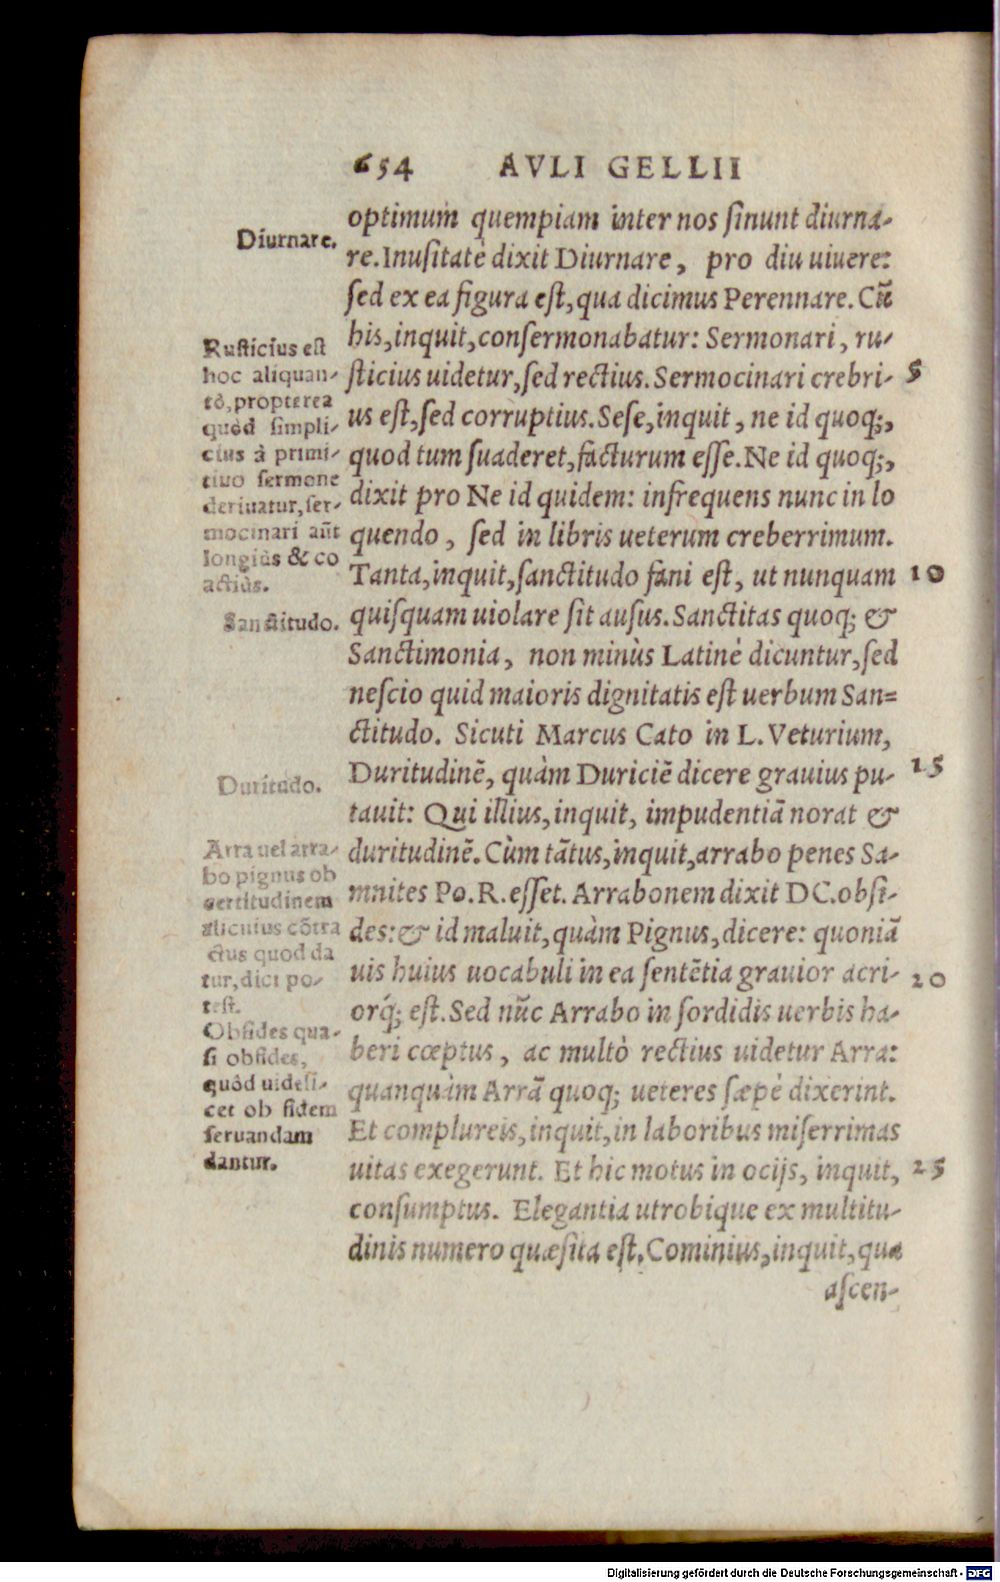 654 AVLI GELLII
optimum quempiam inter nos sinunt diurna-
re. Inusitatè dixit Diurnare, pro diu uiuere:
sed ex ea figura est, qua dicimus Perennare. Cũ
his, inquit, consermonabatur: Sermonari, ru-
sticius uidetur, sed rectius. Sermocinari crebri-
us est, sed corruptius. Sese, inquit, ne id quoq;,
quod tum suaderet, facturum esse. Ne id quoq;,
dixit pro Ne id quidem: infrequens nunc in lo
quendo, sed in libris ueterum creberrimum.
Tanta, inquit, sanctitudo fani est, ut nunquam
quisquam uiolare sit ausus. Sanctitas quoq; &
Sanctimonia, non minùs Latinè dicuntur, sed
nescio quid maioris dignitatis est uerbum San=
ctitudo. Sicuti Marcus Cato in L. Veturium,
Duritudinẽ, quàm Duriciẽ dicere grauius pu-
tauit: Qui illius, inquit, impudentiã norat &
duritudinẽ. Cùm tãtus, inquit, arrabo penes Sa-
mnites Po. R. esset. Arrabonem dixit DC. obsi-
des: & id maluit, quàm Pignus, dicere: quoniã
uis huius uocabuli in ea sentẽtia grauior acri-
orq́; est. Sed nũc Arrabo in sordidis uerbis ha-
beri cœptus, ac multò rectius uidetur Arra:
quanquàm Arrã quoq; ueteres sæpè dixerint.
Et complureis, inquit, in laboribus miserrimas
uitas exegerunt. Et hic motus in ocijs, inquit,
consumptus. Elegantia utrobique ex multitu-
dinis numero quæsita est. Cominius, inquit, qua
ascen-
Diurnare.
Rusticius est
hoc aliquan-
tò, propterea
quòd simpli-
cius à primi-
tiuo sermone
deriuatur, ser-
mocinari aũt
longiùs & co
actiùs.
Sanctitudo.
Duritudo.
Arra uel arra-
bo pignus ob
certitudinem
alicuius cõtra
ctus quod da
tur, dici po-
test.
Obsides qua-
si obfides,
quòd uideli-
cet ob fidem
seruandam
dantur.
5
10
15
20
25
Digitalisierung gefördert durch die Deutsche Forschungsgemeinschaft - DFG